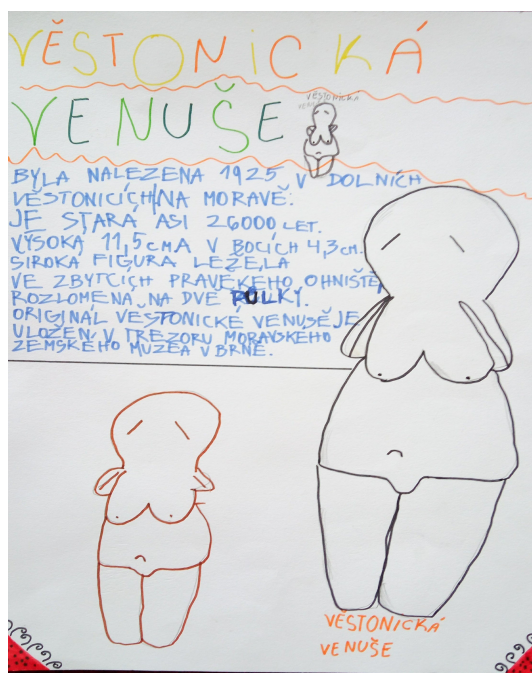 VĚSTONICKÁ
VENUŠE
VĚSTONICKÁ
VENUŠE
BYLA NALEZENA 1925 V DOLNÍCH
VĚSTONICÍCH NA MORAVĚ.
JE STARÁ ASI 26000 LET.
VÝSOKÁ 11,5 cm A V BOCÍCH 4,3 cm.
ŠIROKÁ FIGURA LEŽELA
VE ZBYTCÍCH PRAVĚKÉHO OHNIŠTĚ,
ROZLOMENÁ NA DVĚ PŮLKY.
ORIGINÁL VĚSTONICKÉ VENUŠE JE
ULOŽEN V TREZORU MORAVSKÉHO
ZEMSKÉHO MUZEA V BRNĚ.
VĚSTONICKÁ
VENUŠE